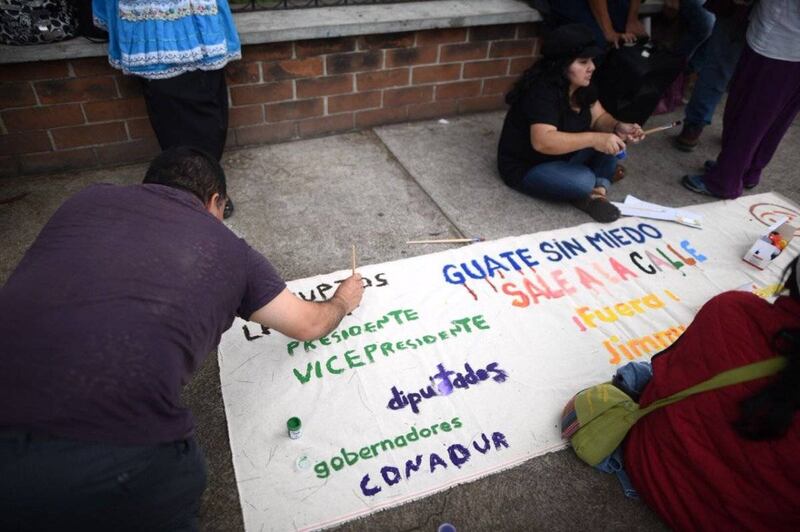 GUATE SIN MIEDO
SALE A LA CALLE
¡Fuera!
Jimmy
PRESIDENTE
VICEPRESIDENTE
diputados
gobernadores
CONADUR